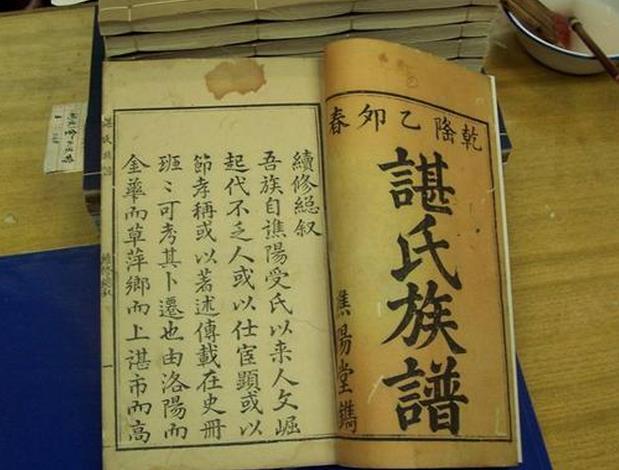 乾隆乙夘春
諶氏族譜
譙陽堂鐫
續修緫叙
吾族自譙陽受氏以来人文崛
起代不乏人或以仕宦顯或以
節孝稱或以著述傳載在史冊
班〻可考其卜遷也由洛陽而
金華而草萍鄉而上諶市而高
諶氏族譜
一